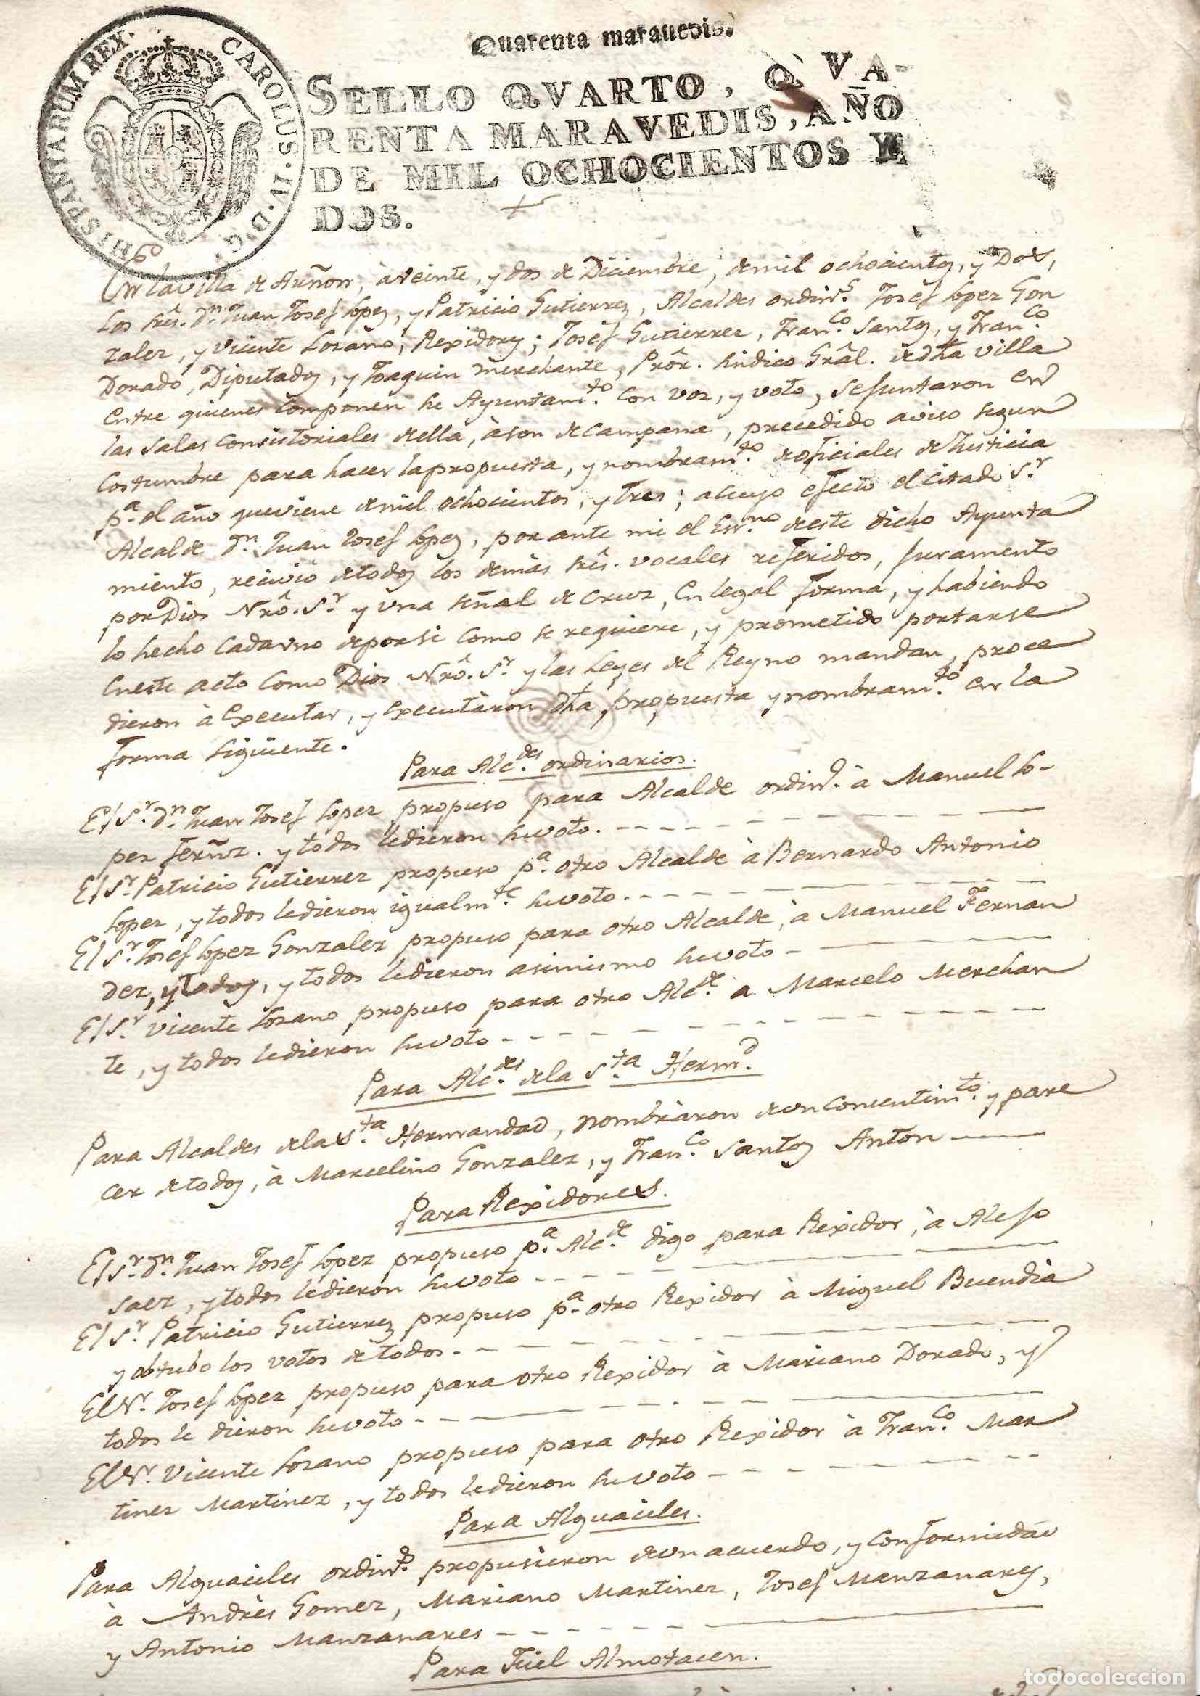 Quarenta maravedis.
HISPANIARUM REX. CAROLUS. IV. D. G.
SELLO QVARTO, QVA-
RENTA MARAVEDIS, AÑO
DE MIL OCHOCIENTOS Y
DOS.
En la villa de Arñon, à veinte, y dos de Diciembre, de mil ochocientos, y Dos,
los srês. Dn. Juan Josef Lopez, y Patricio Gutierrez, Alcaldes ordins. Josef Lopez Gon
zalez, y Vicente Lozano, Rexidores; Josef Gutierrez, Franco. Santos, y Franco.
Dorado, Diputados, y Joaquin Merchante, Prôr. Sindico Grâl. de dha villa
entre quienes componen su Ayuntamto. con voz, y voto, se juntaron en
las salas Consistoriales della, à son de campana, precedido aviso segun
costumbre para hacer la propuesta, y nombramto. de oficiales de Justicia
pa. el año que viene de mil ochocientos, y tres; a cuyo efecto el citado Sr.
Alcalde Dn. Juan Josef Lopez, por ante mi el Essno. de este dicho Ayunta
miento, recivio de todos los demas srês. vocales referidos, juramento
por Dios Nrô. Sr. y una señal de cruz, en legal forma, y habiendo
lo hecho cada uno de por si como se requiere, y prometido portarse
en este acto como Dios Nrô. Sr. y las Leyes del Reyno mandan, proce
dieron à executar, y executaron dha propuesta y nombramto. en la
forma siguiente.
Para Alcdes. ordinarios.
El Sr. Dn. Juan Josef Lopez propuso para Alcalde ordino. à Manuel Lo-
pez Fernz. y todos le dieron su voto.
El Sr. Patricio Gutierrez propuso pa. otro Alcalde à Bernardo Antonio
Lopez, y todos le dieron igualmte. su voto.
El Sr. Josef Lopez Gonzalez propuso para otro Alcalde, à Manuel Fernan
dez, y todos, y todos le dieron asimismo su voto
El Sr. Vicente Lozano propuso para otro Alcde. a Marcelo Merchan
te, y todos le dieron su voto
Para Alcdes. de la Sta Hermd.
Para Alcaldes de la Sta. Hermandad, nombraron de un consentimto. y pare
cer de todos, à Marcelino Gonzalez, y Franco. Santos Anton
Para Rexidores.
El Sr. Dn. Juan Josef Lopez propuso pa. Alcde. digo para Rexidor, à Alejo
Saez, y todos le dieron su voto
El Sr. Patricio Gutierrez propuso pa. otro Rexidor à Miguel Buendia
y obtubo los votos de todos.
El Sr. Josef Lopez propuso para otro Rexidor à Mariano Dorado, y
todos le dieron su voto
El Sr. Vicente Lozano propuso para otro Rexidor à Franco. Mar
tinez Martinez, y todos le dieron su voto
Para Alguaciles.
Para Alguaciles ordins. propusieron de un acuerdo, y conformidad
à Andrès Gomez, Mariano Martinez, Josef Manzanares,
y Antonio Manzanares
Para Fiel Almotacen.
todocoleccion